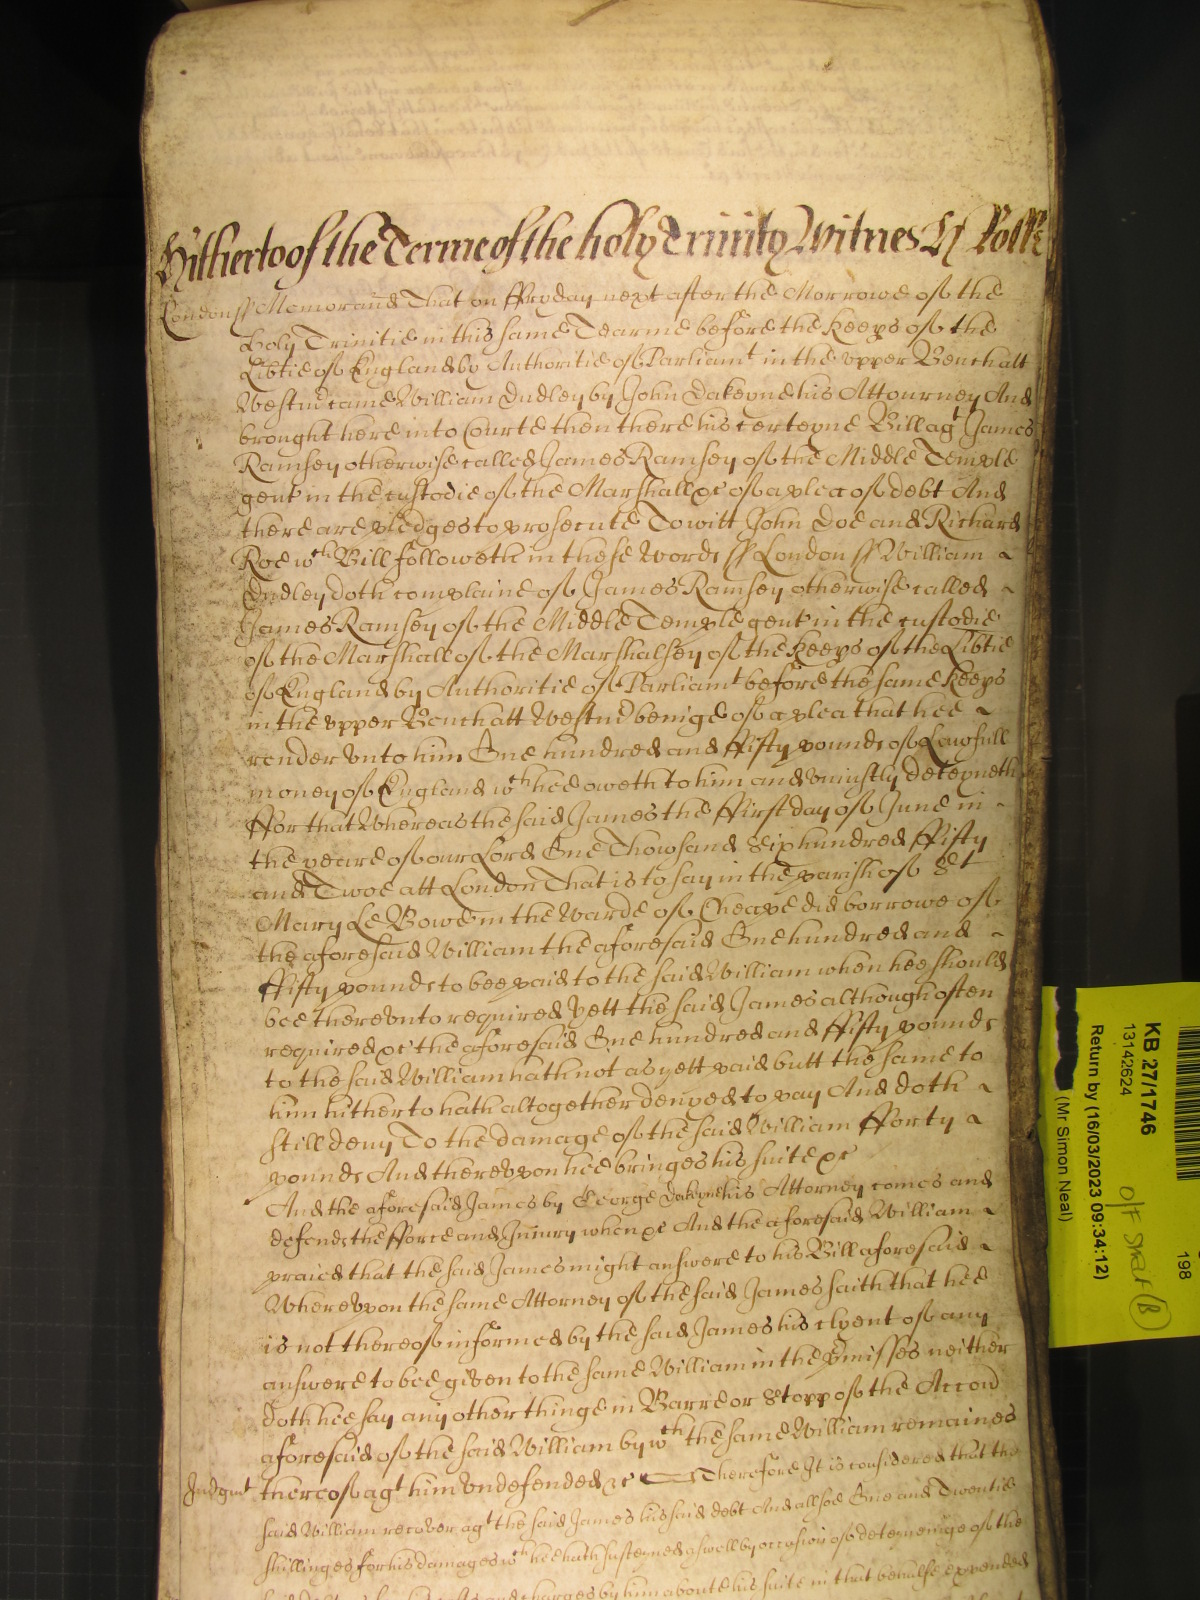 Hitherto of the Terme of the holy Trinity Witnes H Rolle
London ss Memorand That on ffryday next after the Morrowe of the
Holy Trinitie in this same Tearme before the Keeps of the
Libtie of England by Authoritie of Parliamt in the vpper Bench att
Westm came William Dudley by John Dakeyne his Attourney And
brought here into Courte then there his certeyne Bill agt James
Ramsey otherwise called James Ramsey of the Middle Temple
gent in the custodie of the Marshall &c of a plea of debt And
there are pledges to prosecute To witt John Doe and Richard
Roe wch Bill followeth in these Words ss London ss William
Dudley doth complaine of James Ramsey otherwise called
James Ramsey of the Middle Temple gent in the custodie
of the Marshall of the Marshalsey of the Keeps of the Libtie
of England by Authoritie of Parliamt before the same Keeps
in the vpper Bench att Westm beinge of a plea that hee
render vnto him One hundred and ffifty pounds of Lawfull
money of England wch hee oweth to him and vniustly deteyneth
ffor that Whereas the said James the ffirst day of June in
the yeare of our Lord One Thowsand Six hundred ffifty
and Twoe att London That is to say in the parish of St
Mary Le Bowe in the Warde of Cheape did borrowe of
the aforesaid William the aforesaid One hundred and
ffifty pounds to bee paid to the said William when hee should
bee therevnto required Yett the said James although often
required &c the aforesaid One hundred and ffifty pounds
to the said William hath not as yett paid butt the same to
him hitherto hath altogether denyed to pay And doth
still deny To the damage of the said William fforty
pounds And therevpon hee bringes his suite &c
And the aforesaid James by George Dakeyne his Attorney comes and
defends the fforce and Iniury when &c And the aforesaid William
praied that the said James might answere to his Bill aforesaid
Wherevpon the same Attorney of the said James saith that hee
is not thereof informed by the said James his clyent of any
answere to bee given to the same William in the pmisses neither
doth hee say any other thinge in Barre or Stopp of the Accon
aforesaid of the said William by wch the same William remaines
Judgmt thereof agt him vndefended &c Therefore It is considered that the
said William recover agt the said James his said debt And allsoe One and Twentie
shillinges for his damages wch hee hath susteyned aswell by occasion of deteyneinge of the
said debt as for his costs and charges by him about his suite in that behalfe expended
KB 27/1746
13142624
Return by (16/03/2023 09:34:12)
(Mr Simon Neal)
198